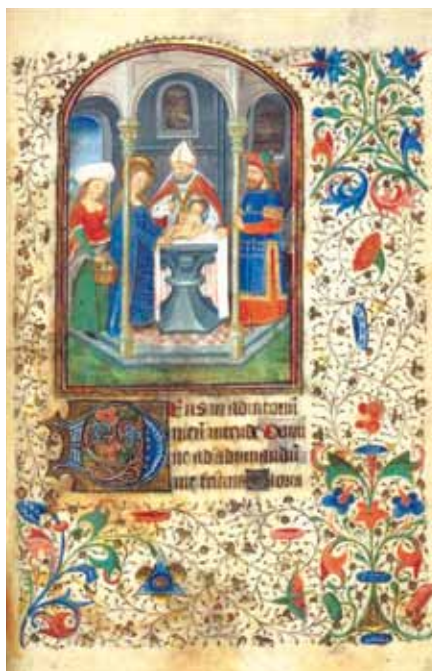 Deus in adiutoriu
meū intende Domi
ne ad adiuvandū
me festina Gloria